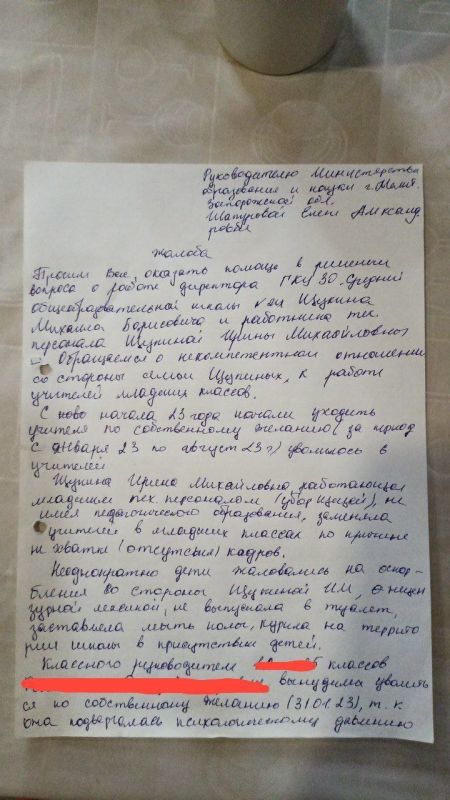 Руководителю Министерства
образования и науки г. Мелит.
Запорожской обл.
Шапуровой Елене Александ
ровне
Жалоба
Просим Вас оказать помощь в решении
вопроса о работе директора ГКУ ЗО "Средней
общеобразовательной школы №24 Щукина
Михаила Борисовича и работника тех.
персонала Щукиной Ирины Михайловны
Обращаемся о некомпетентном отношении
со стороны семьи Щукиных, к работе
учителей младших классов.
С ново начала 23 года начали уходить
учителя по собственному желанию (за период
с Января 23 по август 23 г) уволилось 8
учителей
Щукина Ирина Михайловна, работающая
младшим тех. персоналом (уборщицей), не
имея педагогического образования, заменяла
учителей в младших классах по причине
не хватки (отсутствия) кадров.
Неоднократно дети жаловались на оскор-
бления со стороны Щукиной И.М, о нецен
зурной лексикой, не выпускала в туалет,
заставляла мыть полы, курила на террито
рии школы в присутствии детей.
Классного руководителя классов
вынудили уволить
ся по собственному желанию (31.01.23), т.к
она подвергалась психологическому давлению